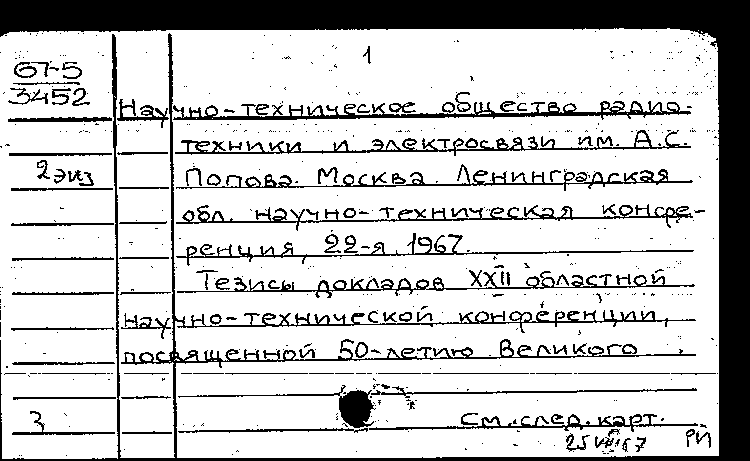 1
67-5
3452
Научно-техническое общество радио-
техники и электросвязи им. А.С.
2 экз
Попова. Москва. Ленинградская
обл. научно-техническая конфе-
ренция, 22-я, 1967.
Тезисы докладов XXII областной
научно-технической конференции,
посвященной 50-летию Великого
3
См. след. карт.
25 VII 67 РП